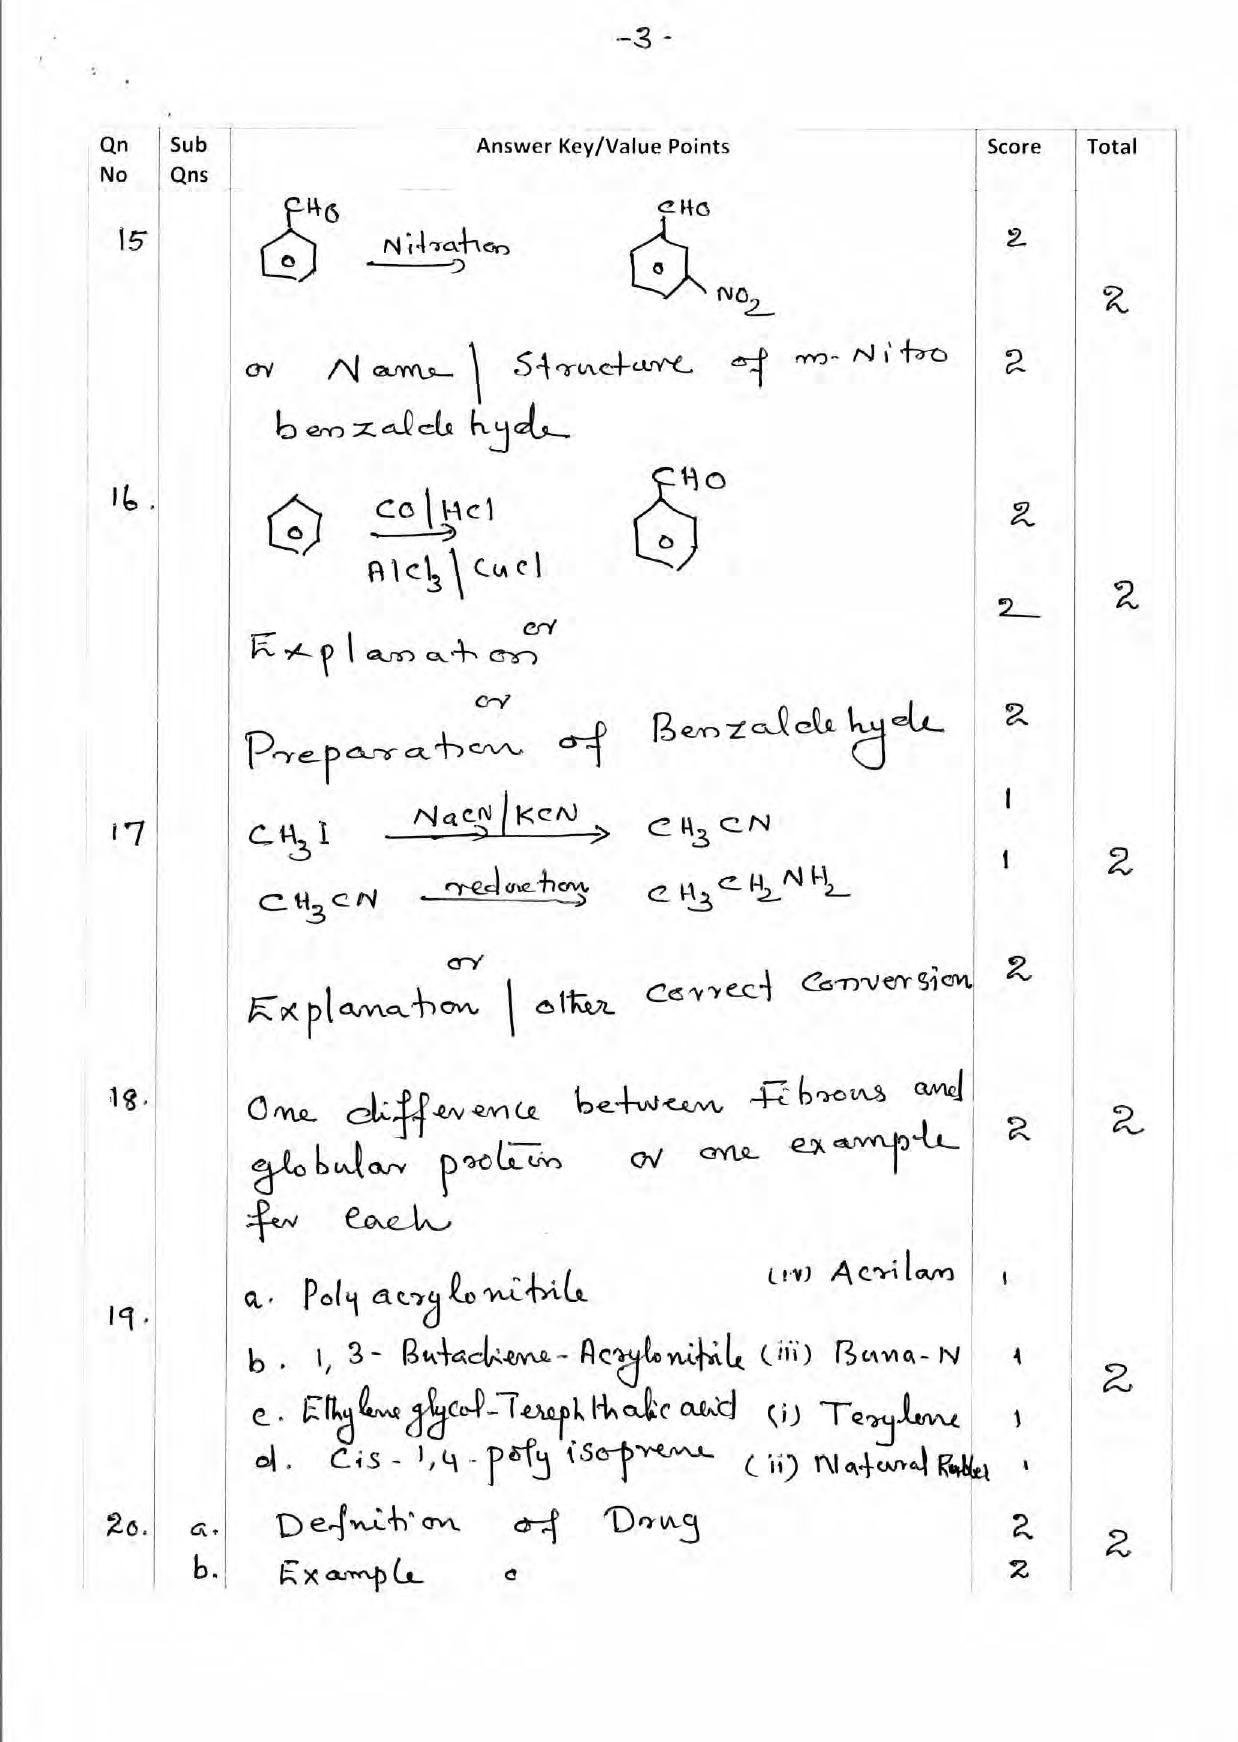 -3-
Qn No Sub Qns Answer Key/Value Points Score Total
15 CHO Nitration CHO NO2 2 2
or Name / Structure of m-Nitro 2
benzaldehyde
16. CO/HCl AlCl3/CuCl CHO 2 2
or 2
Explanation
or
Preparation of Benzaldehyde 2
17 CH3I NaCN/KCN CH3CN 1
CH3CN reduction CH3CH2NH2 1 2
or
Explanation / other correct conversion 2
18. One difference between Fibrous and
globular protein or one example 2 2
for each
19. a. Polyacrylonitrile (iv) Acrilan 1
b. 1, 3- Butadiene-Acrylonitrile (iii) Buna-N 1 2
c. Ethylene glycol-Terephthalic acid (i) Terylene 1
d. Cis-1,4-polyisoprene (ii) Natural Rubber 1
20. a. Defnition of Drug 2 2
b. Example 2